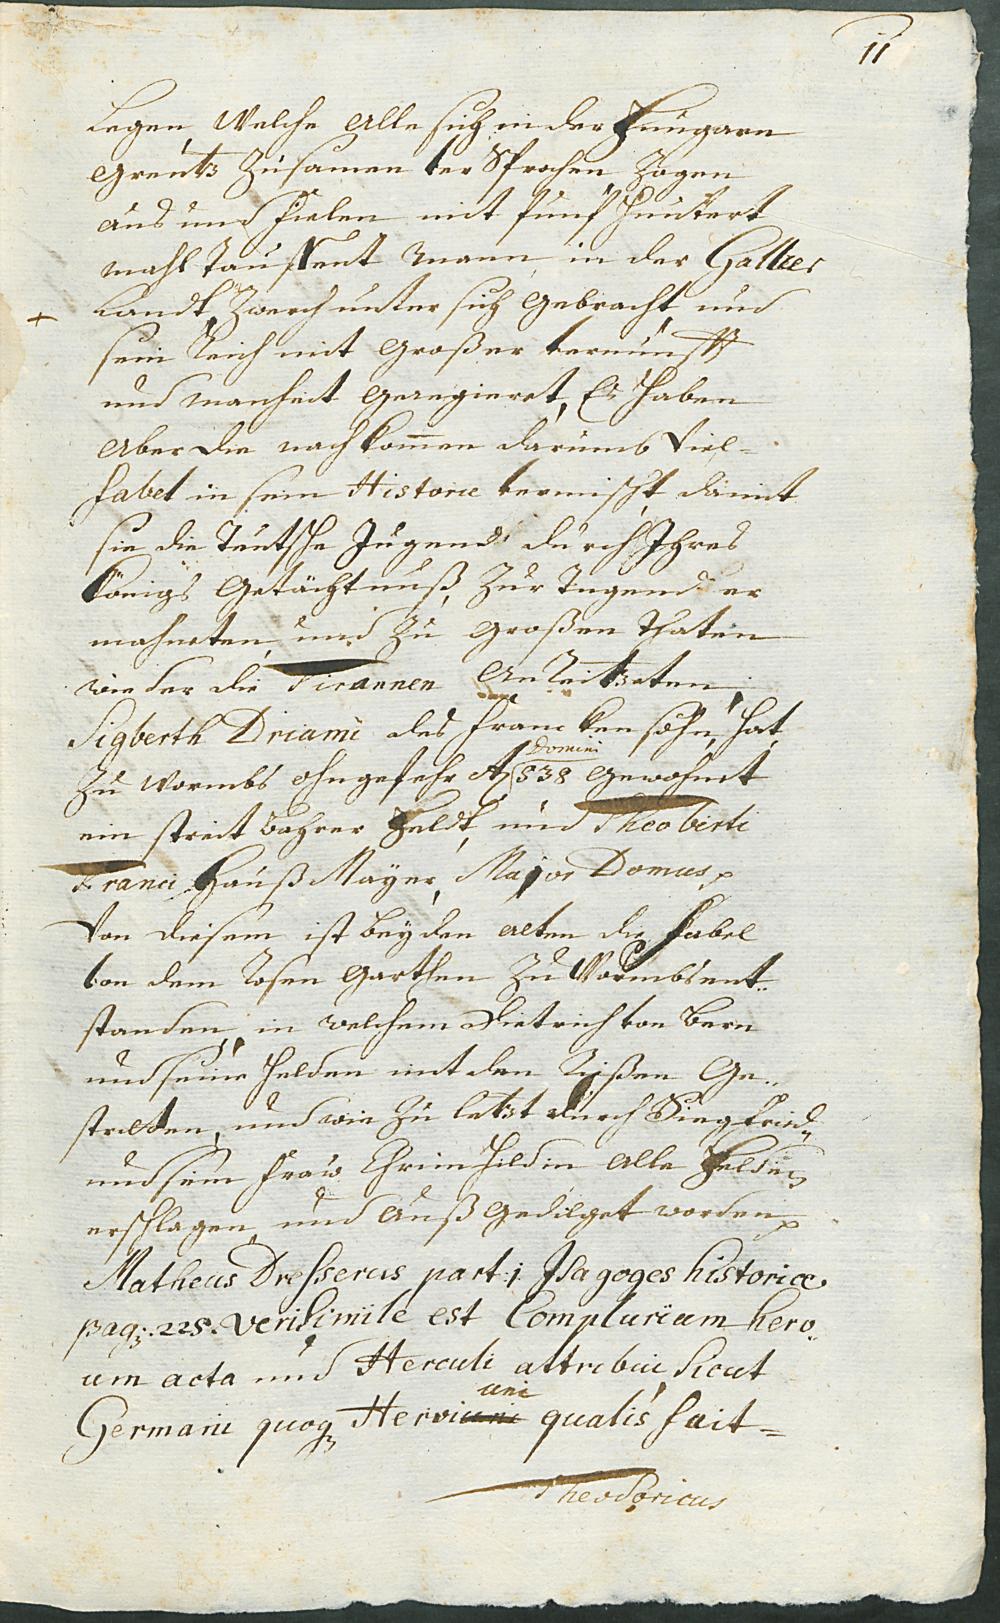 11
Legen, Welche Alle sich in der Hungarn
Grentz Zusamen versprochen Zogen
aus und fielen mit Funf Hundert
mahl Taussent Mann in der Gallier
Landt, Zwerch unter sich Gebracht, und
sein Reich mit Großer vernunfft
und Manheit Geregieret, Es Haben
Aber die nach kommen darumb Viel=
fabel in sein Historie vermischt, damit
sie die Teutsche Jugend durch Ihres
Königs Getächtnuß, Zur Tugend er
mahneten, und Zu Großen Thaten
wieder die Tirannen Anreitzeten;
Sigberth Driami des francken sohn, hat
Domini
Zu Wormbs ohngefehr Aº 538 Gewohnt
ein streitbahrer Heldt, und Theoberti
Franci Hauß Mayer, Major Domus,
Von diesem ist bey den Alten die Fabel
von dem Rosen Garthen Zu Wormbs ent=
standen, in welchem Dietrich von Bern
und seine Helden mit den Rißen Ge=
stritten, und wie Zu letzt durch Siegfried
und sein Fraw Chrimhildin Alle Helden
erschlagen, und Auß Gedilget worden,
Matheus Dresserus part: j. Isagoges historicæ.
pag: 225. Verisimile est Complurium hero=
um acta und Herculi attribui sicut
uni
Germani quoq Heroi qualis fuit=
Theodoricus